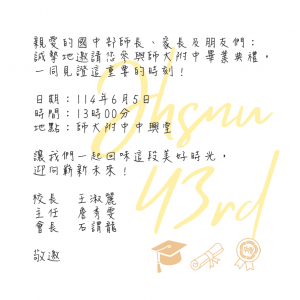 親愛的國中部師長、家長及朋友們：
誠摯地邀請您參與師大附中畢業典禮，
一同見證這重要的時刻！
日期：114年6月5日
時間：13時00分
地點：師大附中中興堂
讓我們一起回味這段美好時光，
迎向嶄新未來！
校長　王淑麗
主任　詹秀雯
會長　石謂龍
敬邀
Jhsnu
43rd